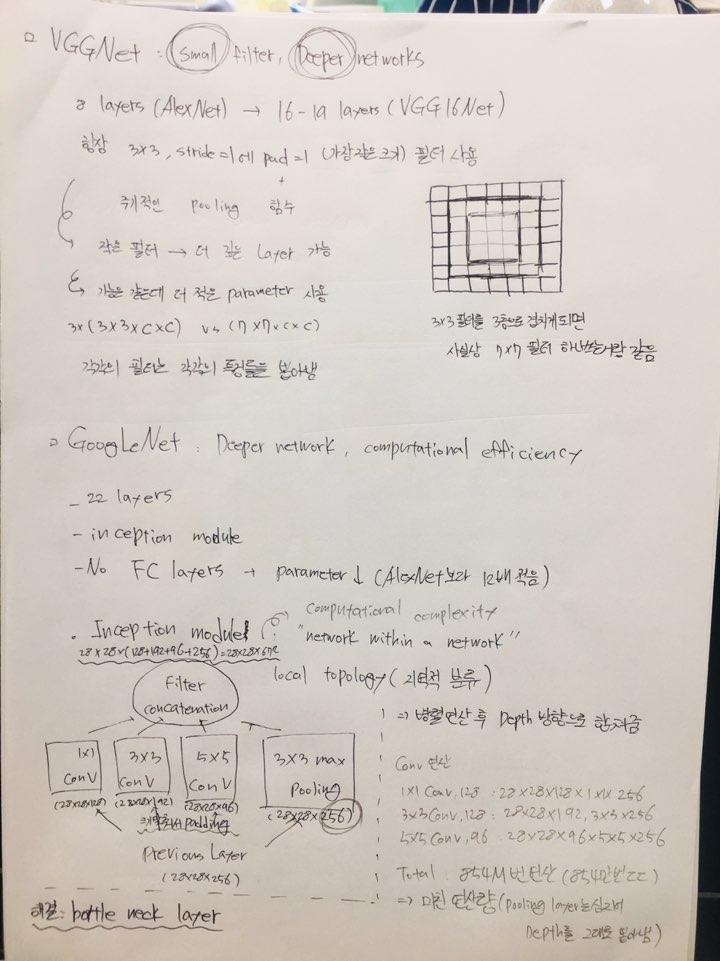 □ VGGNet : small filter, Deeper networks
8 layers (AlexNet) → 16-19 layers (VGG16Net)
항상 3x3, stride=1에 pad=1 (가장 작은 크기) 필터 사용
+
주기적인 pooling 함수
작은 필터 → 더 깊은 Layer 가능
기능은 같은데 더 적은 parameter 사용
3x(3x3xCxC) vs (7x7xCxC)
각각의 필터는 각각의 특징들을 뽑아냄
3x3 필터를 3층으로 겹치게 되면
사실상 7x7 필터 하나 랑 같음
□ GoogLeNet : Deeper network, computational efficiency
- 22 layers
- inception module
- No FC layers → parameter↓ (AlexNet보다 12배 적음)
• Inception module
computational complexity
"network within a network"
28x28x(128+192+96+256)=28x28x672
local topology (지역적 분류)
Filter concatenation
⇒ 병렬연산 후 Depth 방향으로 합쳐줌
1x1 Conv
3x3 Conv
5x5 Conv
3x3 max Pooling
(28x28x128)
(28x28x192)
(28x28x96)
(28x28x256)
padding
Previous Layer
(28x28x256)
Conv 연산
1x1 Conv, 128 : 28x28x128x1x1x256
3x3 Conv, 128 : 28x28x192, 3x3x256
5x5 Conv, 96 : 28x28x96x5x5x256
Total : 854M 번 연산 (854만번ㄷㄷ)
⇒ 미친 연산량 (pooling layer는 심지어
Depth를 그대로 뽑아냄)
해결 : bottle neck layer